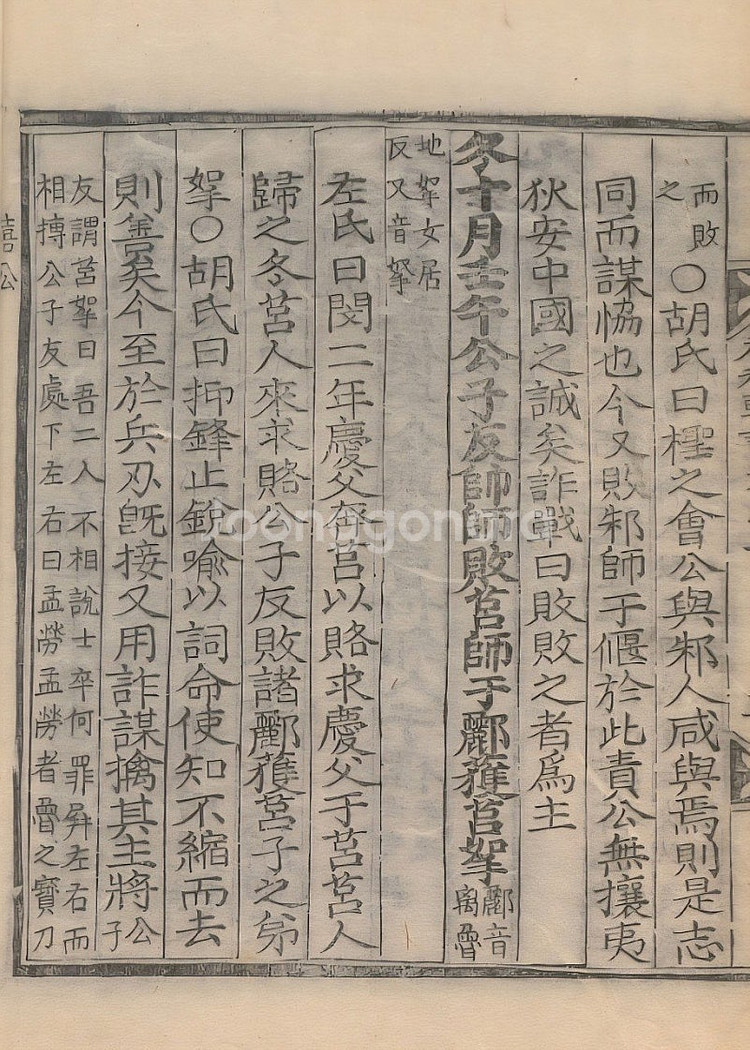 而敗
之
○胡氏曰檉之會公與邾人咸與焉則是志
同而謀恊也今又敗邾師于偃於此責公無攘夷
狄安中國之誠矣詐戰曰敗敗之者爲主
冬十月壬午公子友帥師敗莒師于酈獲莒挐
酈音
离魯
地挐女居
反又音挐
左氏曰閔二年慶父奔莒以賂求慶父于莒莒人
歸之冬莒人來求賂公子友敗諸酈獲莒子之弟
挐○胡氏曰抑鋒止銳喻以詞命使知不縮而去
則善矣今至於兵刃旣接又用詐謀擒其主將
公
子
友謂莒挐曰吾二人不相說士卒何罪屛左右而
相摶公子友處下左右曰孟勞孟勞者魯之寶刀
僖公